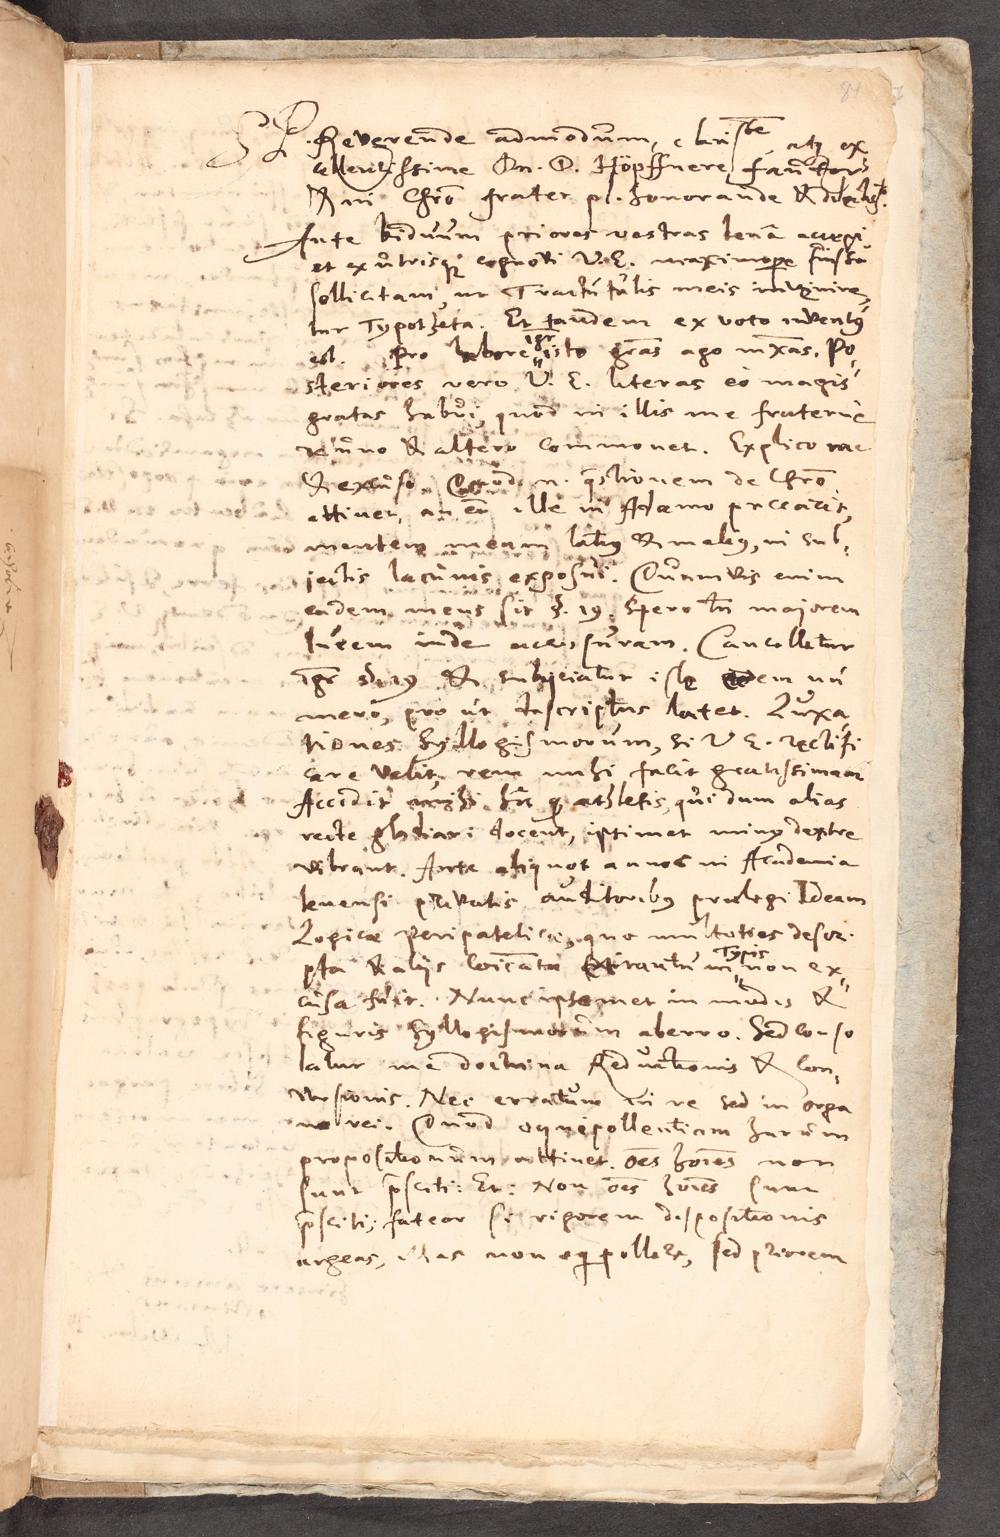 S.P. Reverende admodum, clariss.e, atq; ex
cellentissime Dn. D. Höpffnere, fautor
& in Chro frater pl. honorande & dilecte.
Ante biduum priores vestras literas accepi
et ex utrisque cognovi V. E. maximopere fuisse
sollicitam, ut Tractatulis meis inveniretur
Typotheta. Et tandem ex voto inventus
est. Pro labore igr isto gras ago mxas. Po-
steriores vero V. E. literas eò magis
gratas habui, quod in illis me fraternè
de uno & altero commonet. Explico me
& excuso. Quod n. qstionem de Chro
attinet, an eu ille in Adamo peccarit,
mentem meam latius & melius, in sub-
jectis lacunis exposui. Quamvis enim
eadem mens sit §. 19. Spero tn majorem
lucem inde accessuram. Cancelletur
igr §. 19 & subjiciatur iste eodem nu
mero, pro ut descriptus latet. Luxa
tiones Syllogismorum, si V E. rectifi
care velit, rem mihi faciet gratissimam
Accidit mihi hic qd athletis, qui dum alios
recte gladiari docent, ipsimet minus dextre
vibrant. Ante aliquot annos in Academia
Ienensi privatis auditoribus praelegi Ideam
Logicae Peripateticae, quae multoties descri-
pta & alijs coicata tantum Typis non ex-
cusa fuit. Nunc ipsemet in modis &
figuris Syllogismorum aberro. Sed conso
latur me doctrina Reductionis & Con-
versionis. Nec erratum in re sed in orga
no rei. Quod aequipollentiam harum
propositionum attinet. Oes hoies non
sunt psciti: Et: Non oes hoies sunt
psciti; fateor si rigorem dispositionis
urgeas, illas non aeqpollere, sed priorem